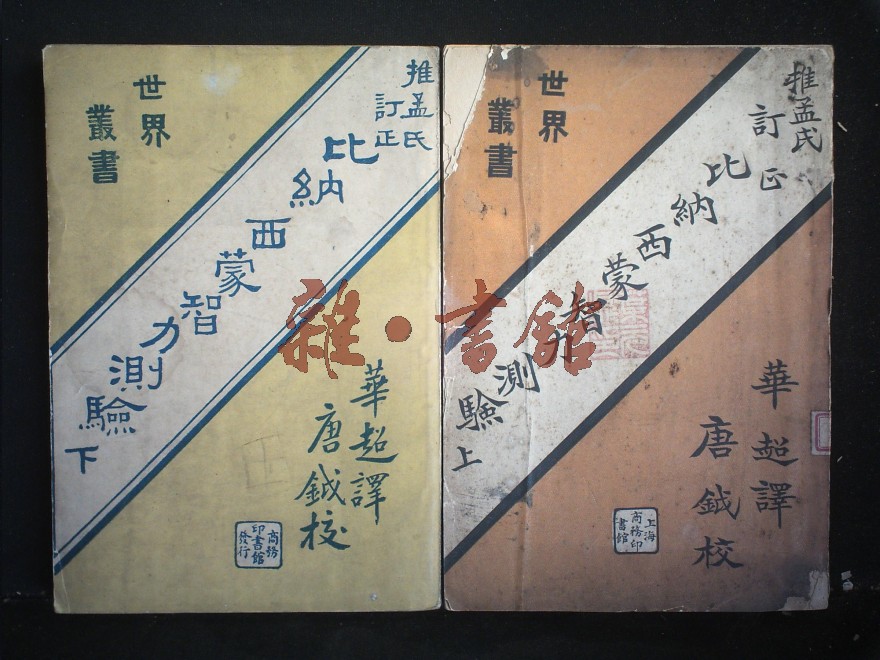 世界
叢書
推孟氏
訂正
比納西蒙智力測驗
下
華超譯
唐鉞校
商務
印書館
發行
世界
叢書
推孟氏
訂正
比納西蒙智力測驗
上
華超譯
唐鉞校
上海
商務印
書館
雜·書館